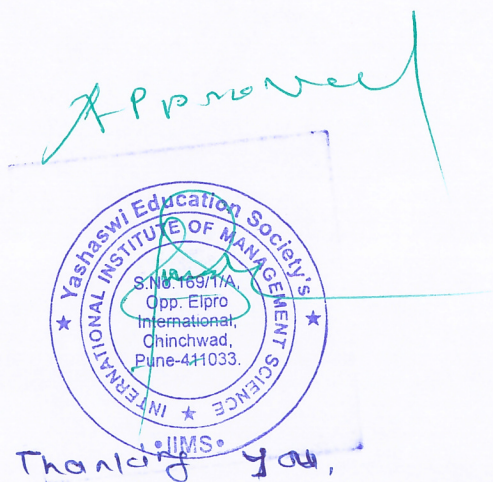 Approved
Yashaswi Education Society's
INTERNATIONAL INSTITUTE OF MANAGEMENT SCIENCE
S.No.169/1/A,
Opp. Elpro
International,
Chinchwad,
Pune-411033.
•IIMS•
Thanking You,